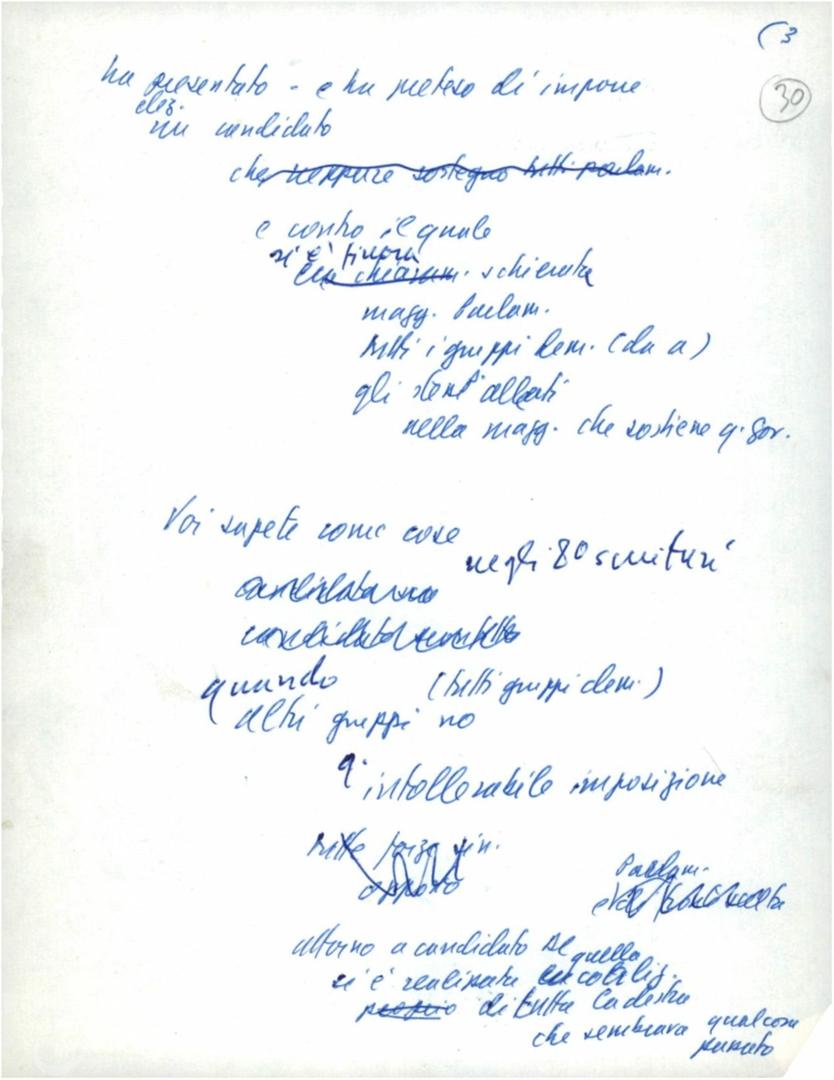 (3
30
ha presentato - e ha preteso di imporre
elez.
un candidato
che neppure sostegno tutti parlam.
e contro il quale
si è finora
chiaram. schierata
magg. parlam.
tutti i gruppi dem. (da a)
gli stessi alleati
nella magg. che sostiene q. gov.
Voi sapete come cose
negli 80 scrutini
candidatura
candidato
quando (tutti gruppi dem.)
altri gruppi no
q. intollerabile imposizione
tutte forze sin.
opposto
Parlam.
attorno a candidato DC
si è realizzata quella coaliz.
proprio di tutta la destra
che sembrava qualcosa
passato